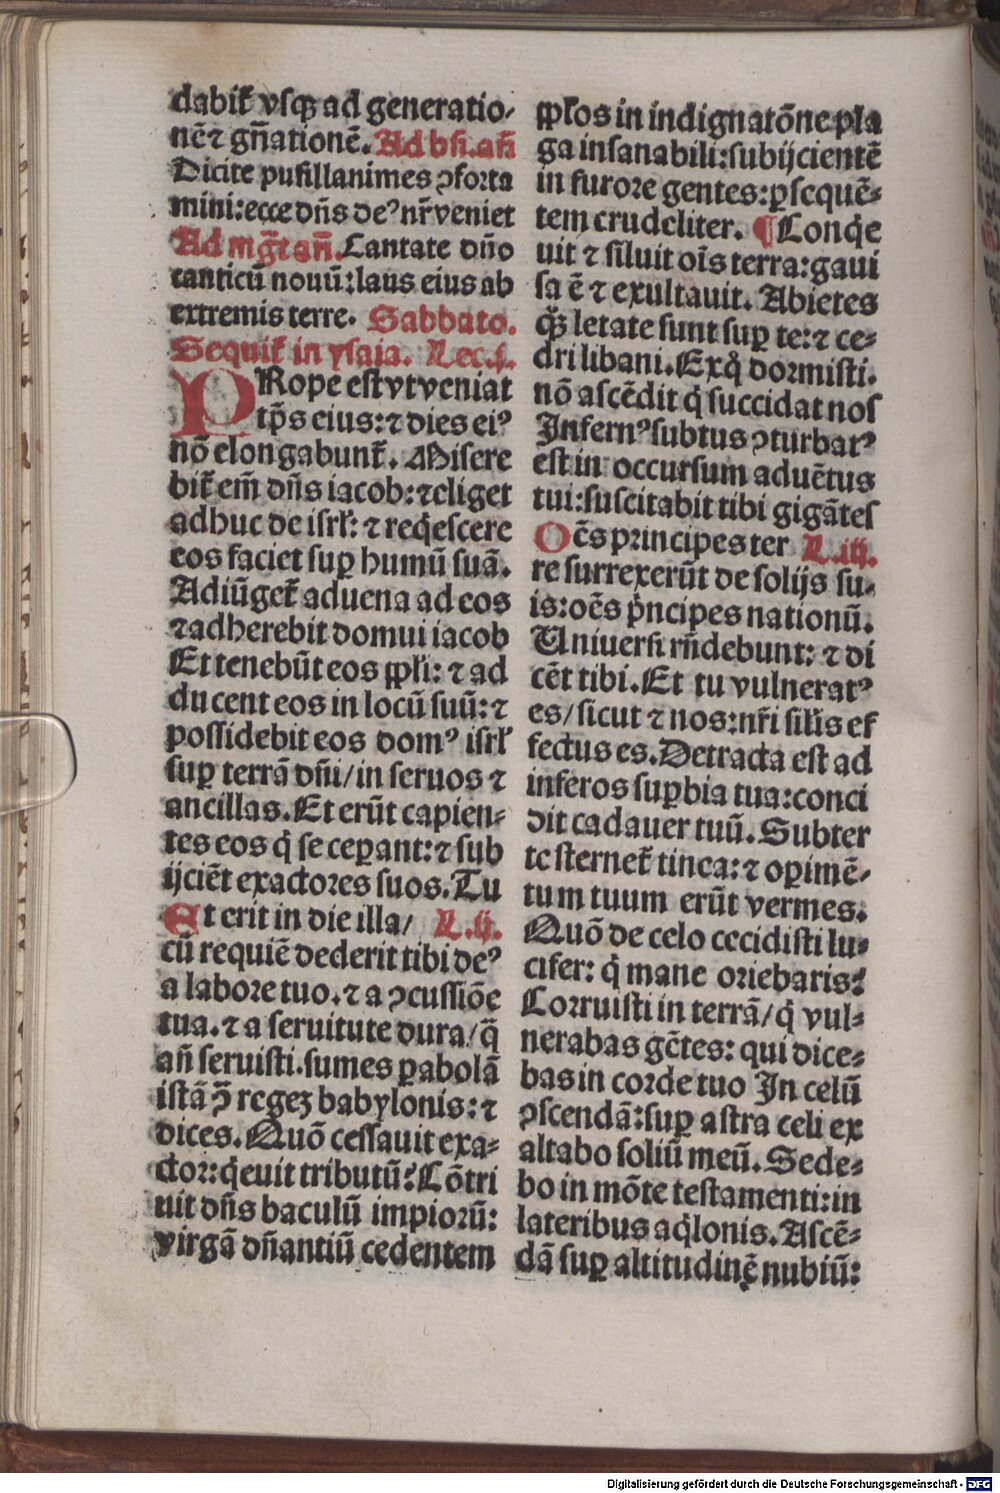 dabit᷑ vsqꝫ ad generatio-
nē ⁊ gn̄ationē. Ad bn̄. an̄
Dicite pusillanimes ꝯforta
mini: ecce dn̄s deꝰ nr̄ veniet
Ad mg̅t an̄. Cantate dn̄o
canticū nouū: laus eius ab
extremis terre. Sabbato.
Sequit᷑ in ysaia. Lec. j.
PRope est vt veniat
tp̄s eius: ⁊ dies eiꝰ
nō elongabunt᷑. Misere
bit᷑ em̄ dn̄s iacob: ⁊ eliget
adhuc de isrl̄: ⁊ reqͥescere
eos faciet suꝑ humū suā.
Adiūget᷑ aduena ad eos
⁊ adherebit domui iacob
Et tenebūt eos ppl̄i: ⁊ ad
ducent eos in locū suū: ⁊
possidebit eos domꝰ isrl̄
suꝑ terrā dn̄i/ in seruos ⁊
ancillas. Et erūt capien-
tes eos qͥ se ceꝑant: ⁊ sub
ijciēt exactores suos. Tu
Et erit in die illa/ L. ij.
cū requiē dederit tibi deꝰ
a labore tuo. ⁊ a ꝯcussiōe
tua. ⁊ a seruitute dura/ q̄
an̄ seruisti. sumes ꝑabolā
istā ꝯ̄ regeꝫ babylonis: ⁊
dices. Quō cessauit exa-
ctor: qͥeuit tributū? Cōtri
uit dn̄s baculū impiorū:
virgā dn̄antiū cedentem
ppl̄os in indignatōne pla
ga insanabili: subijcientē
in furore gentes: ꝑsequē-
tem crudeliter. ¶ Conqͥe
uit ⁊ siluit oīs terra: gaui
sa ē ⁊ exultauit. Abietes
qꝫ letate sunt suꝑ te: ⁊ ce-
dri libani. Ex qͦ dormisti.
nō ascēdit qͥ succidat nos
Infernꝰ subtus ꝯturbatꝰ
est in occursum aduētus
tui: suscitabit tibi gigātes
Oēs principes ter L. iij.
re surrexerūt de solijs su-
is: oēs pͥncipes nationū.
Uniuersi rn̄debunt: ⁊ di
cēt tibi. Et tu vulneratꝰ
es/ sicut ⁊ nos: nr̄i sil̄is ef
fectus es. Detracta est ad
inferos suꝑbia tua: conci
dit cadauer tuū. Subter
te sternet᷑ tinea: ⁊ oꝑimē-
tum tuum erūt vermes.
Quō de celo cecidisti lu-
cifer: qͥ mane oriebaris?
Corruisti in terrā/ qͥ vul-
nerabas gētes: qui dice-
bas in corde tuo In celū
ꝯscendā: suꝑ astra celi ex
altabo soliū meū. Sede-
bo in mōte testamenti: in
lateribus aqͥlonis. Ascē-
dā suꝑ altitudinē nubiū:
Digitalisierung gefördert durch die Deutsche Forschungsgemeinschaft - DFG